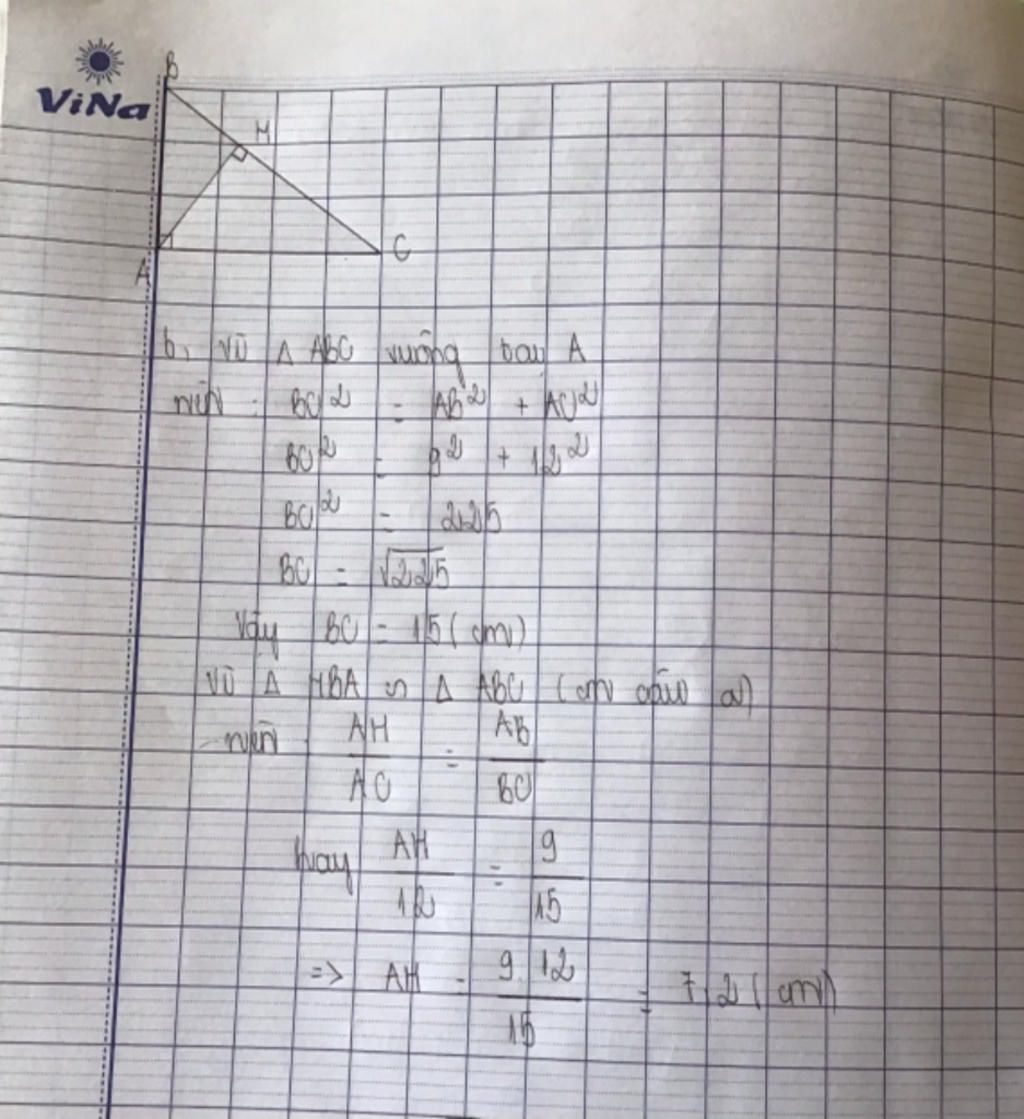 ViNa
B
H
A
C
b, Vì Δ ABC vuông tại A
nên : BC² = AB² + AC²
BC² = 9² + 12²
BC² = 225
BC = √225
Vậy BC = 15 (cm)
Vì Δ HBA ∽ Δ ABC (cm câu a)
nên AH/AC = AB/BC
hay AH/12 = 9/15
=> AH = 9.12/15 = 7,2 (cm)